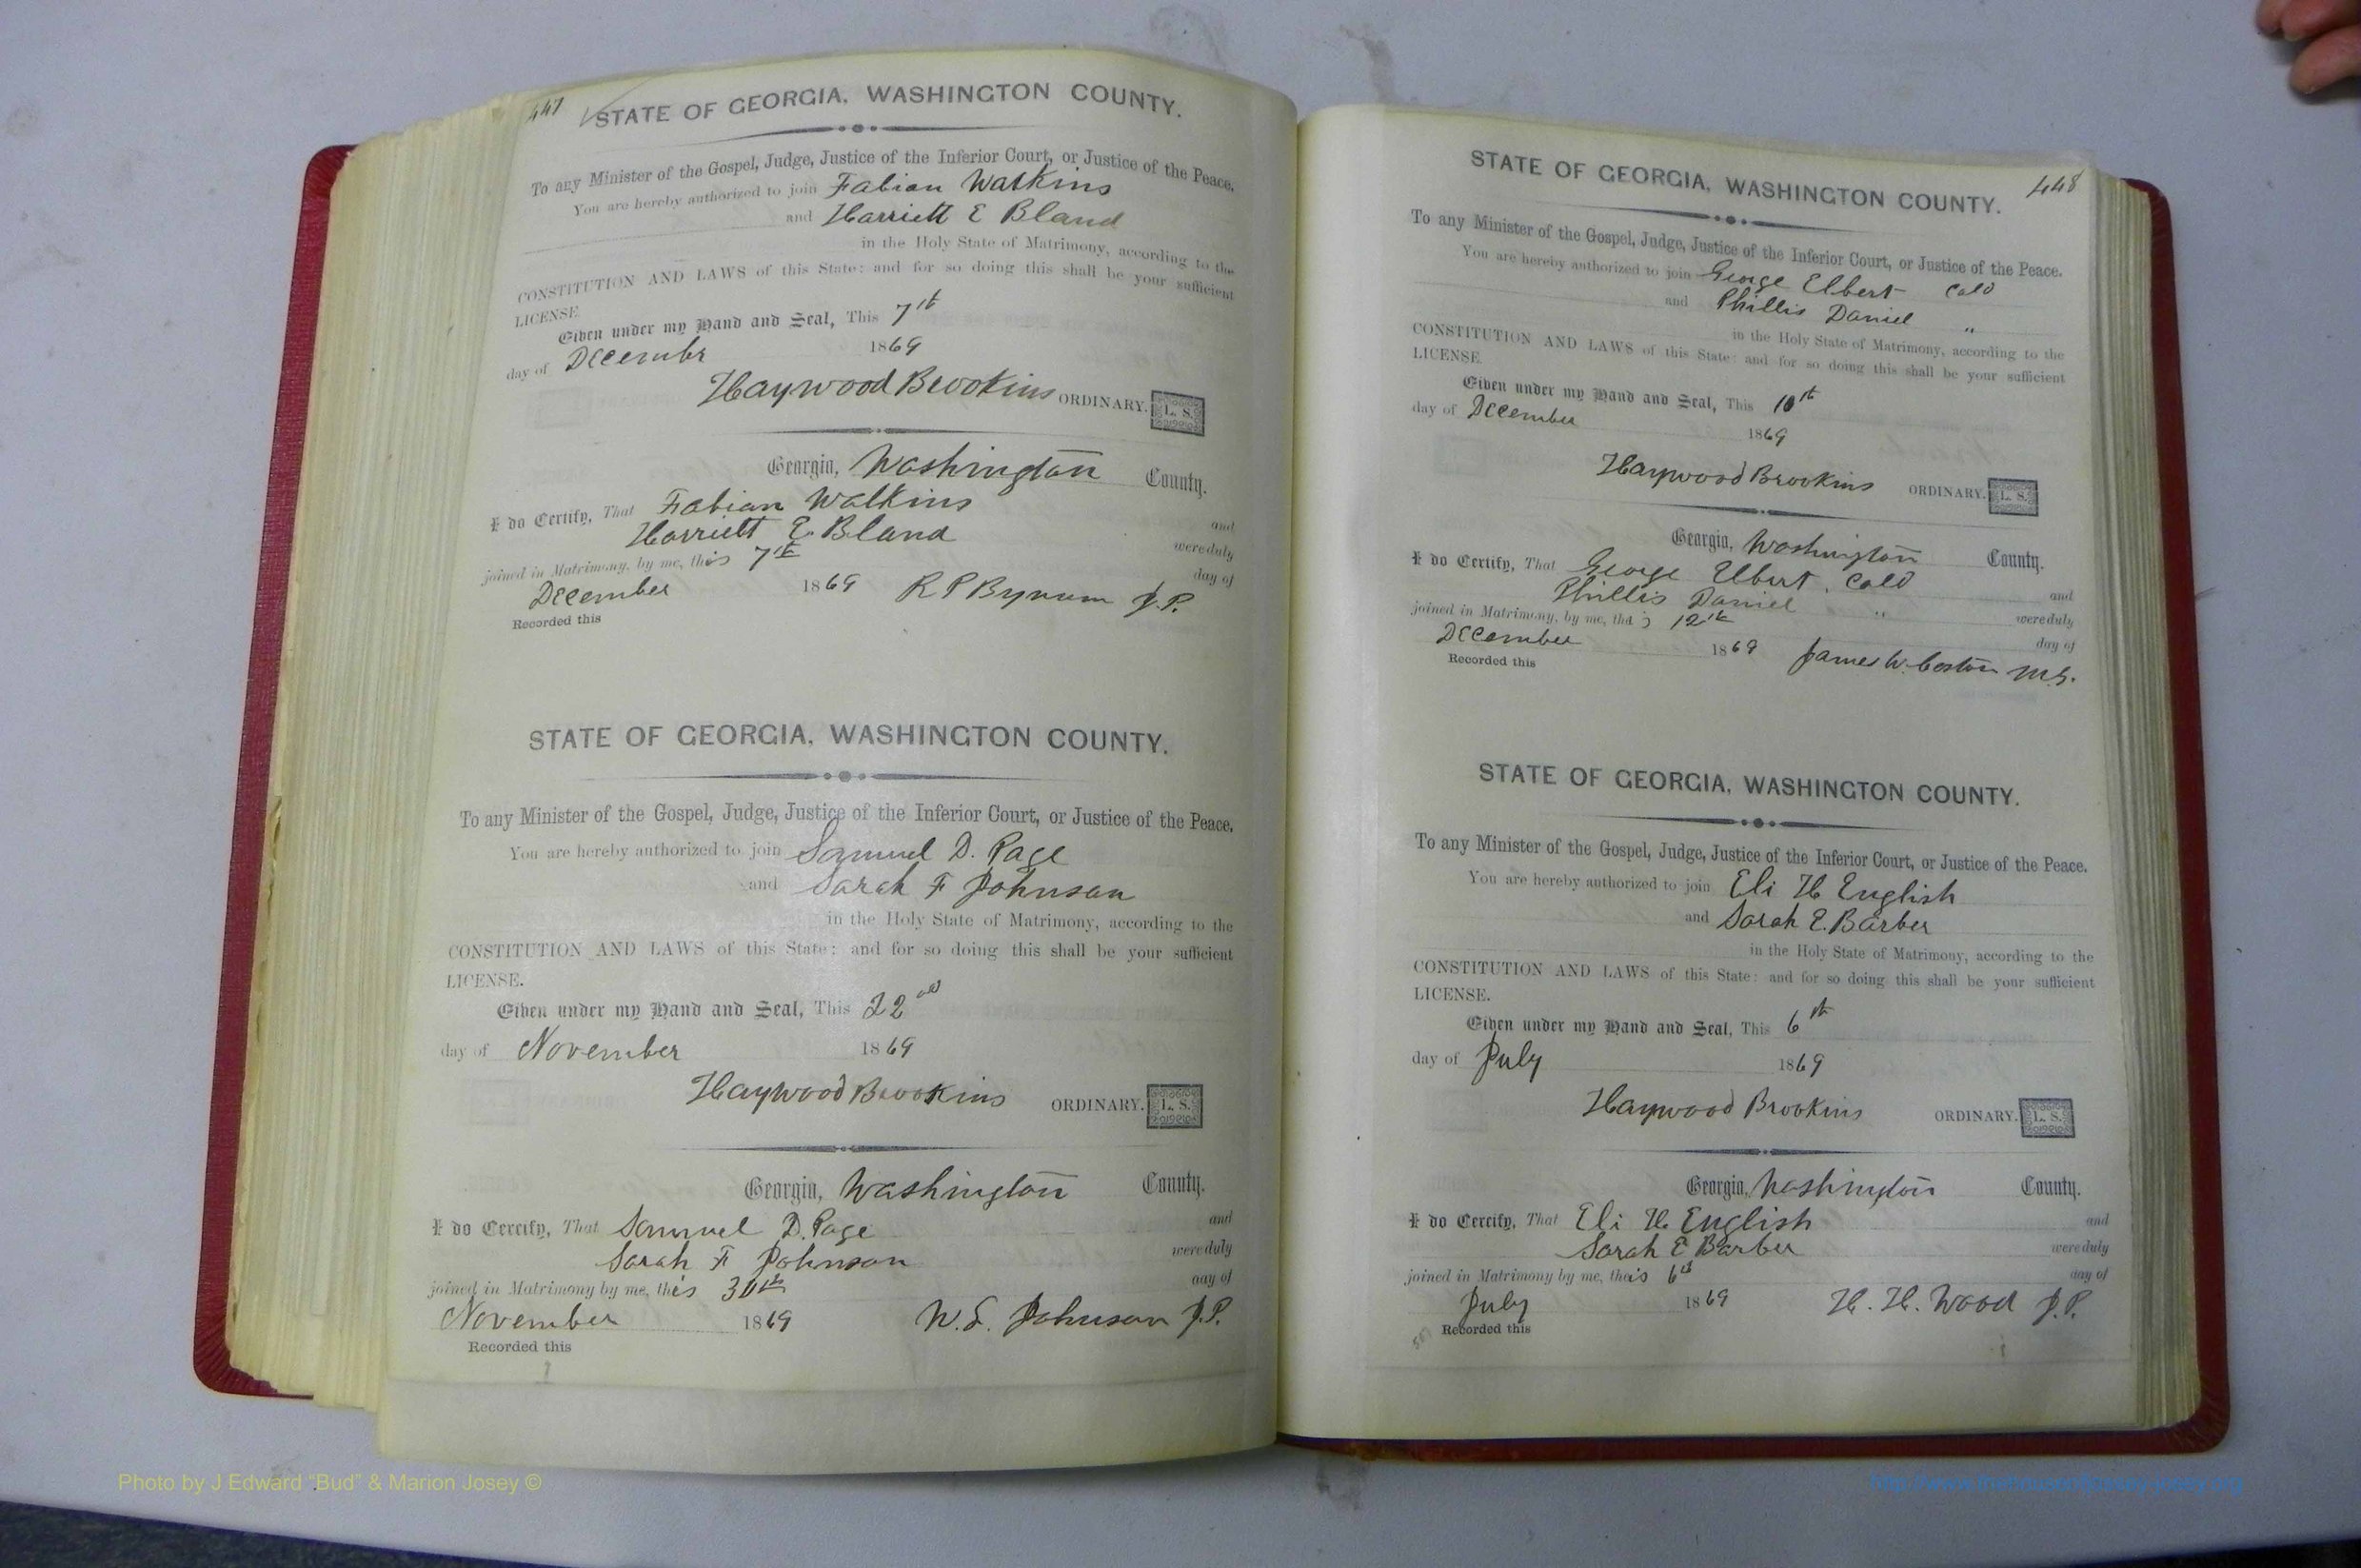 447
STATE OF GEORGIA, WASHINGTON COUNTY.
To any Minister of the Gospel, Judge, Justice of the Inferior Court, or Justice of the Peace.
You are hereby authorized to join Fabian Watkins
and Harriett E Bland
in the Holy State of Matrimony, according to the
CONSTITUTION AND LAWS of this State: and for so doing this shall be your sufficient
LICENSE.
Given under my Hand and Seal, This 7th
day of Decembr 1869
Haywood Brookins ORDINARY. L. S.
Georgia, Washington County.
I do Certify, That Fabian Watkins and
Harriett E. Bland were duly
joined in Matrimony, by me, this 7th day of
December 1869 R P Bynum J.P.
Recorded this
STATE OF GEORGIA, WASHINGTON COUNTY.
To any Minister of the Gospel, Judge, Justice of the Inferior Court, or Justice of the Peace,
You are hereby authorized to join Samuel D. Page
and Sarah F Johnson
in the Holy State of Matrimony, according to the
CONSTITUTION AND LAWS of this State: and for so doing this shall be your sufficient
LICENSE.
Given under my Hand and Seal, This 22nd
day of November 1869
Haywood Brookins ORDINARY. L. S.
Georgia, Washington County.
I do Certify, That Samuel D. Page and
Sarah F Johnson were duly
joined in Matrimony by me, this 30th day of
November 1869 W. S. Johnson J.P.
Recorded this
448
STATE OF GEORGIA, WASHINGTON COUNTY.
To any Minister of the Gospel, Judge, Justice of the Inferior Court, or Justice of the Peace.
You are hereby authorized to join George Elbert Cold
and Phillis Daniel "
in the Holy State of Matrimony, according to the
CONSTITUTION AND LAWS of this State: and for so doing this shall be your sufficient
LICENSE.
Given under my Hand and Seal, This 10th
day of December 1869
Haywood Brookins ORDINARY. L. S.
Georgia, Washington County.
I do Certify, That George Elbert, Cold and
Phillis Daniel " were duly
joined in Matrimony, by me, this 12th day of
December 1869 James W. M.G.
Recorded this
STATE OF GEORGIA, WASHINGTON COUNTY.
To any Minister of the Gospel, Judge, Justice of the Inferior Court, or Justice of the Peace.
You are hereby authorized to join Eli H English
and Sarah E. Barber
in the Holy State of Matrimony, according to the
CONSTITUTION AND LAWS of this State: and for so doing this shall be your sufficient
LICENSE.
Given under my Hand and Seal, This 6th
day of July 1869
Haywood Brookins ORDINARY. L. S.
Georgia, Washington County.
I do Certify, That Eli H. English and
Sarah E Barber were duly
joined in Matrimony by me, this 6th day of
July 1869 H. H. Wood J.P.
Recorded this
Photo by J Edward “Bud” & Marion Josey ©